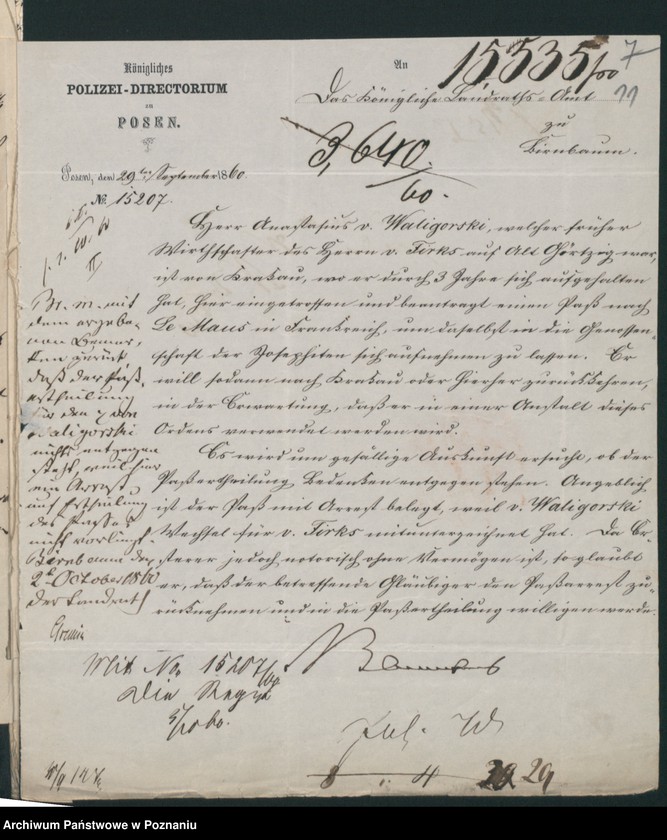 Königliches
POLIZEI-DIRECTORIUM
zu
POSEN.
Posen, den 29ten September 1860.
№ 15207.
An
15535/60
7
11
Das Königliche Landraths-Amt
zu
Birnbaum.
3,640.
60.
Herr Anastasius v. Waligorski, welcher früher
Wirthschafter des Herrn v. Firks auf Alt Görtzig war,
ist von Krakau, wo er durch 3 Jahre sich aufgehalten
hat, hier eingetroffen und beantragt einen Paß nach
Le Maus in Frankreich, um daselbst in die Genossen-
schaft der Josephiten sich aufnehmen zu lassen. Er
will sodann nach Krakau oder hierher zurückkehren,
in der Erwartung, daß er in einer Anstalt dieses
Ordens verwendet werden wird.
Es wird um gefällige Auskunft ersucht, ob der
Paßertheilung Bedenken entgegen stehen. Angeblich
ist der Paß mit Arrest belegt, weil v. Waligorski
Wechsel für v. Firks mitunterzeichnet hat. Da Er-
sterer jedoch notorisch ohne Vermögen ist, so glaubt
er, daß der betreffende Gläubiger den Paßarrest zu-
rücknehmen und in die Paßertheilung willigen werde.
Br. m. mit
dem ergebe-
nen Bemer-
ken zurück,
daß der Paß-
ertheilung
für den p von
Waligorski
nichts entgegen
steht, weil hier
ein Arrest
auf Ertheilung
des Passes
nicht vorliegt.
Birnbaum den
2t October 1860
Der Landrath
Mit No. 15207/60.
Die Regist
3/10 60.
29
Archiwum Państwowe w Poznaniu